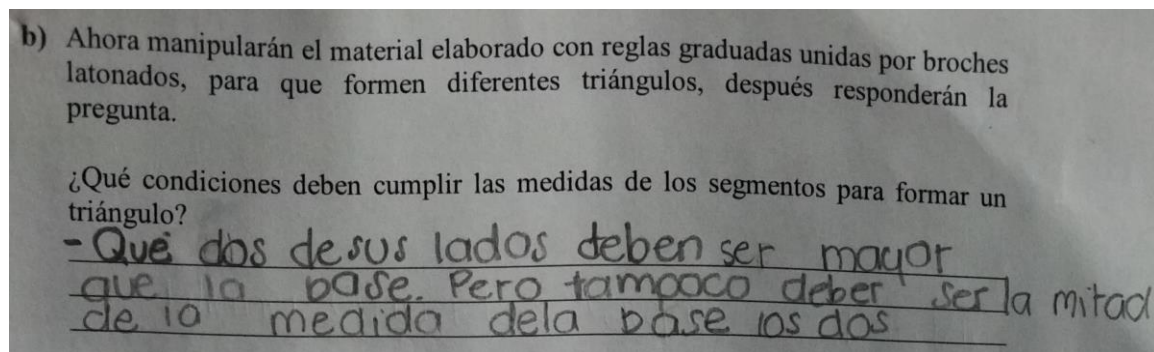 b) Ahora manipularán el material elaborado con reglas graduadas unidas por broches
latonados, para que formen diferentes triángulos, después responderán la
pregunta.
¿Qué condiciones deben cumplir las medidas de los segmentos para formar un
triángulo?
- Que dos de sus lados deben ser mayor
que la base. Pero tampoco deber ser la mitad
de la medida dela base los dos